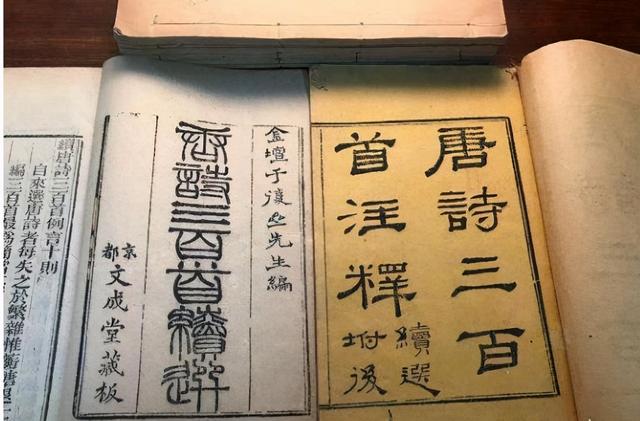 唐詩三百
首注釋
續選
坿後
金壇于復先生編
唐詩三百首續選
京都
文成堂藏板
續唐詩三百首例言十則
自來選唐詩者每失之於繁雜惟蘅唐退
編三百首最為簡